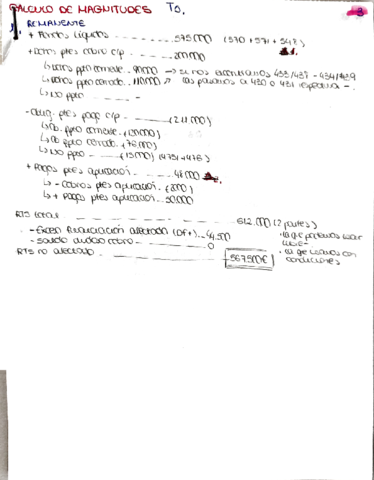 CALCULO DE MAGNITUDES T5.
3
1. REMANENTE
+ Fondos Líquidos ------- 575.000 (570 + 571 + 548)
+ Dchos ptes cobro c/p -------
↳ Dchos ppto corriente. → si nos 433/438 - 434/439
↳ Dchos ppto cerrado. las pasamos a 430 o 431
↳ No ppto ------ -
- Oblig. ptes pago c/p ------- (211.000)
↳ Ob. ppto corriente.
↳ Ob ppto cerrado. (76.000)
↳ No ppto ---- (15.000) (4751 + 476)
+ Pagos ptes aplicación. ------- 48.000
↳ - cobros ptes aplicación.
↳ + Pagos ptes aplicación... 50.000
RTS total ------- 612.000 (2 partes)
- Exceso financiación afectada (Df+) -- 44.500
- saldo dudoso cobro ------- 0
RTS no afectado ------- 567.500€
· la que podemos usar libre-
· la que usamos con condiciones